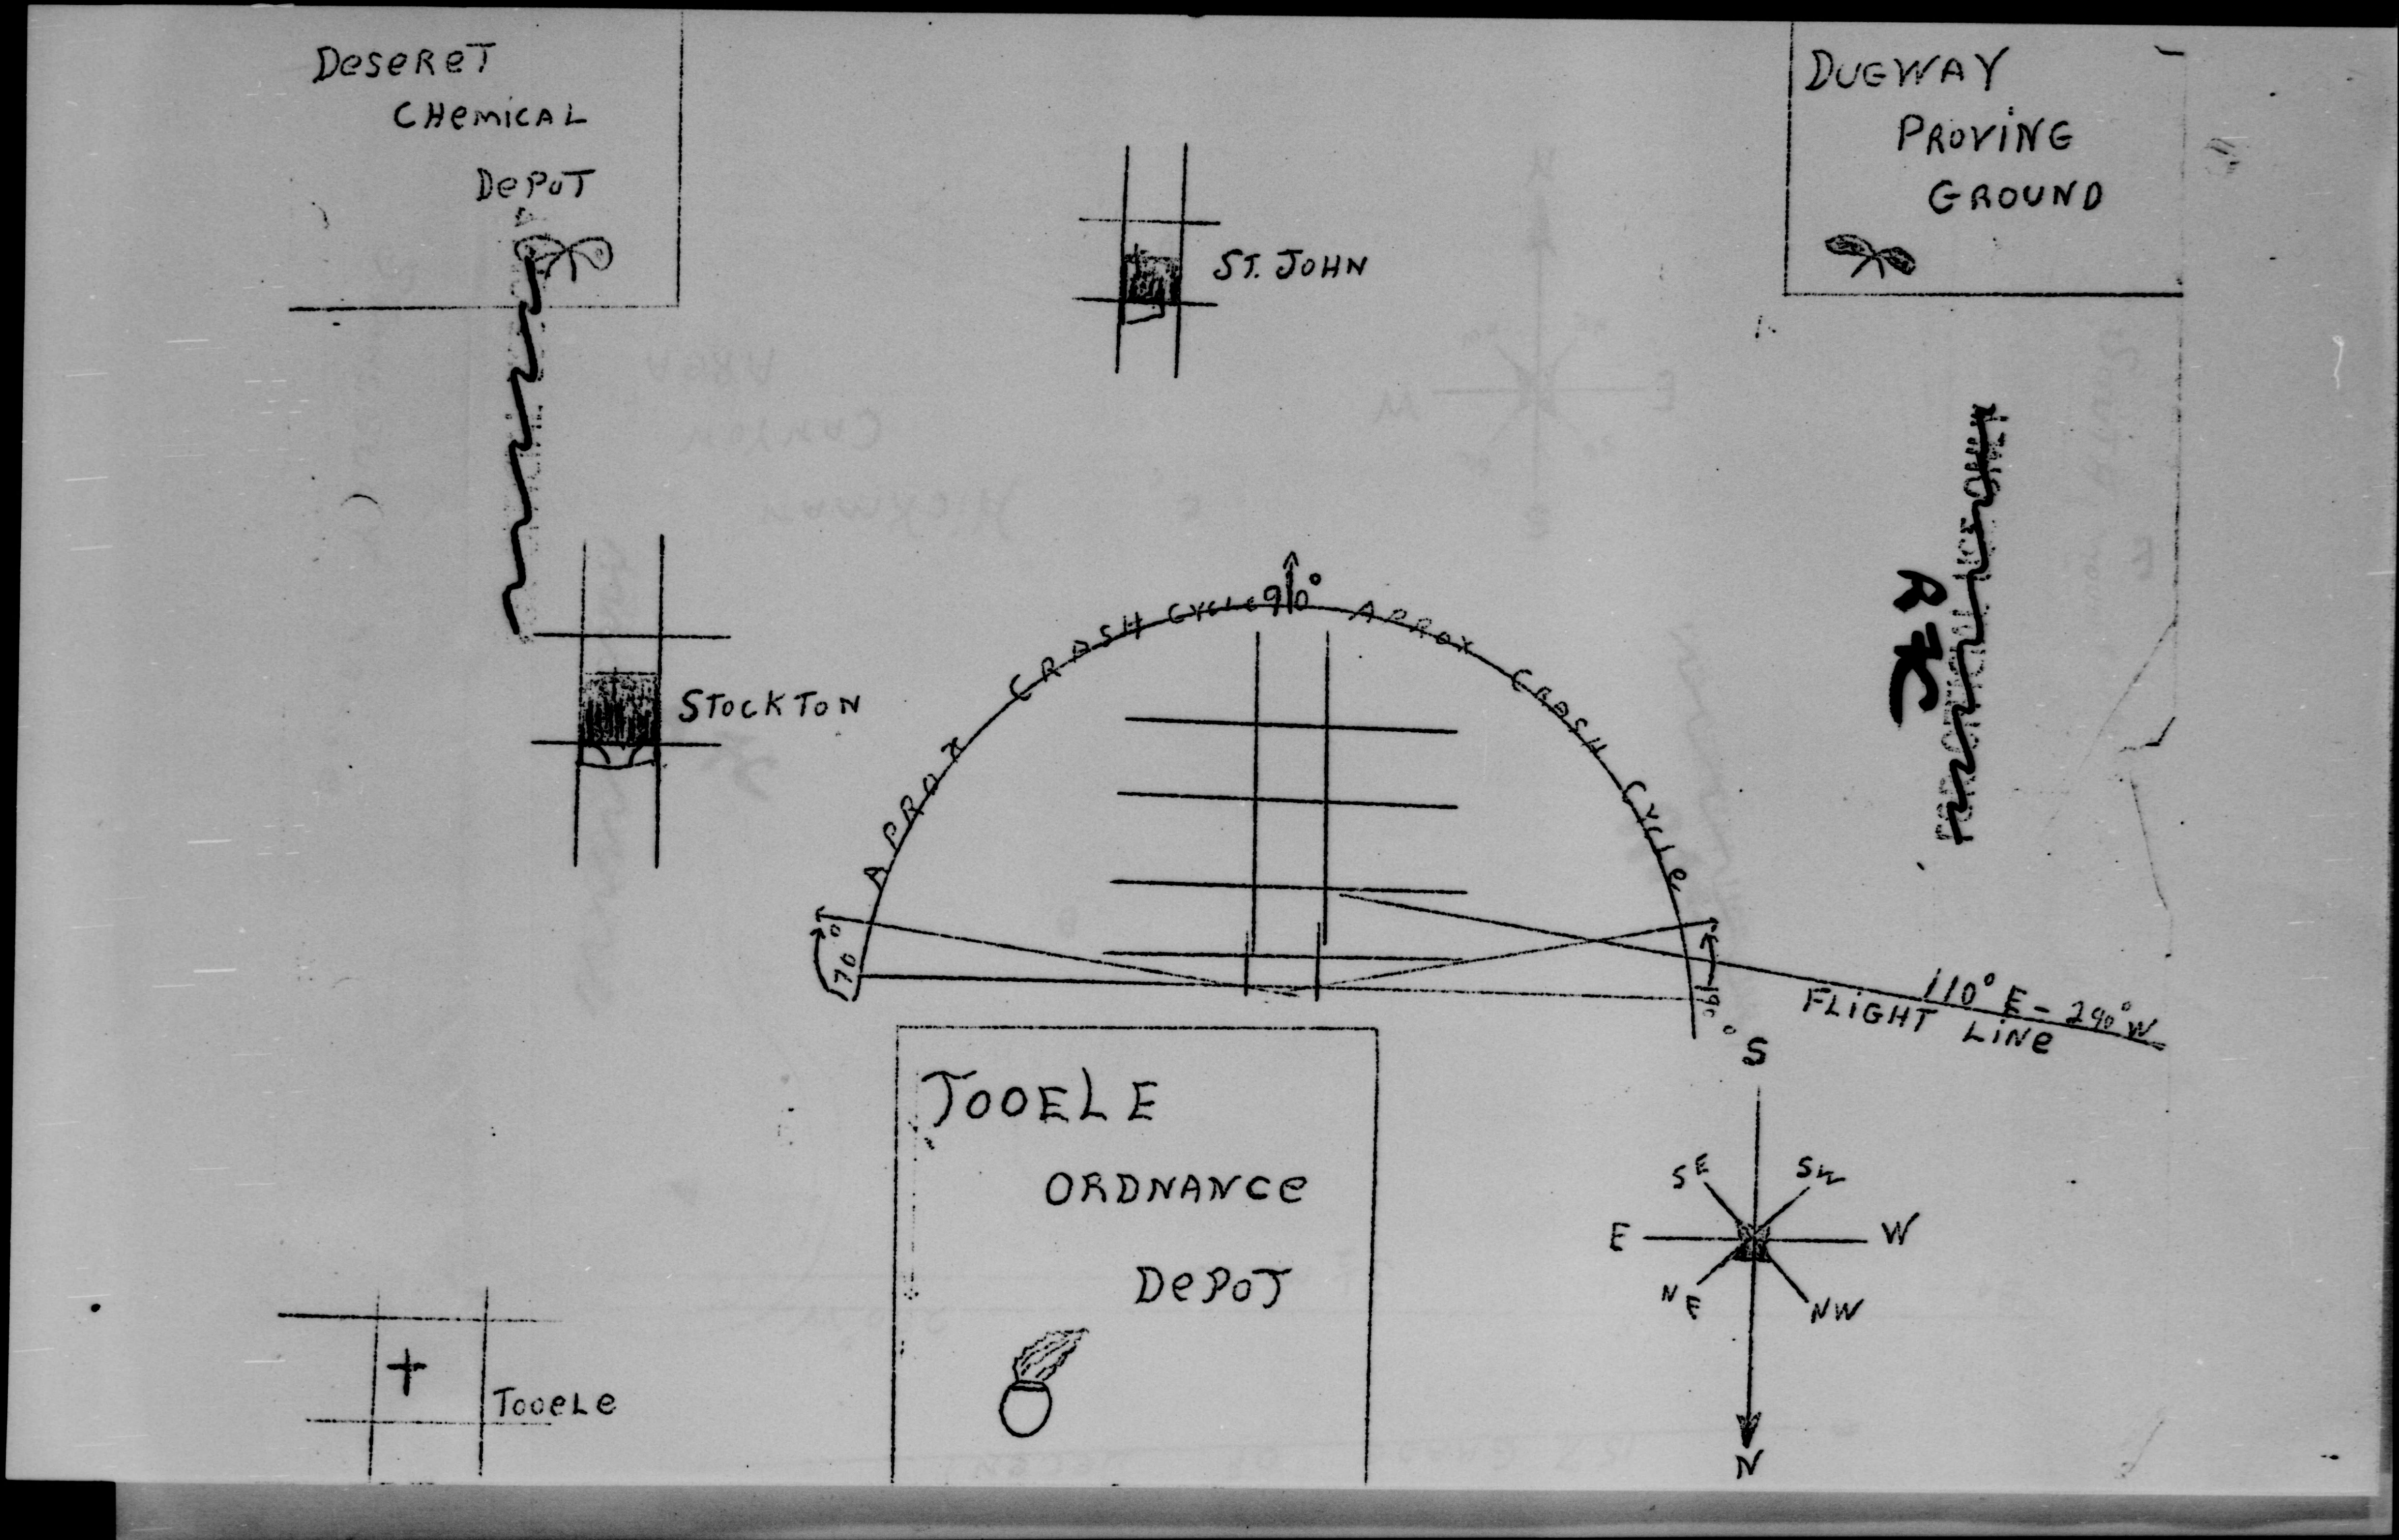 DeseReT
CHemicAL
DePoT
DUGWAY
PROViNG
GROUND
ST. JOHN
FOR OFFICIAL USE ONLY
STOCKTON
APROX CRASH CYCLE 90° APROX CRASH CYCLe
70°
110° E - 290° W
FLiGHT LiNe
TOOELE
ORDNANCe
DePOT
S
SE
SW
E
W
NE
NW
N
+
TOOeLe